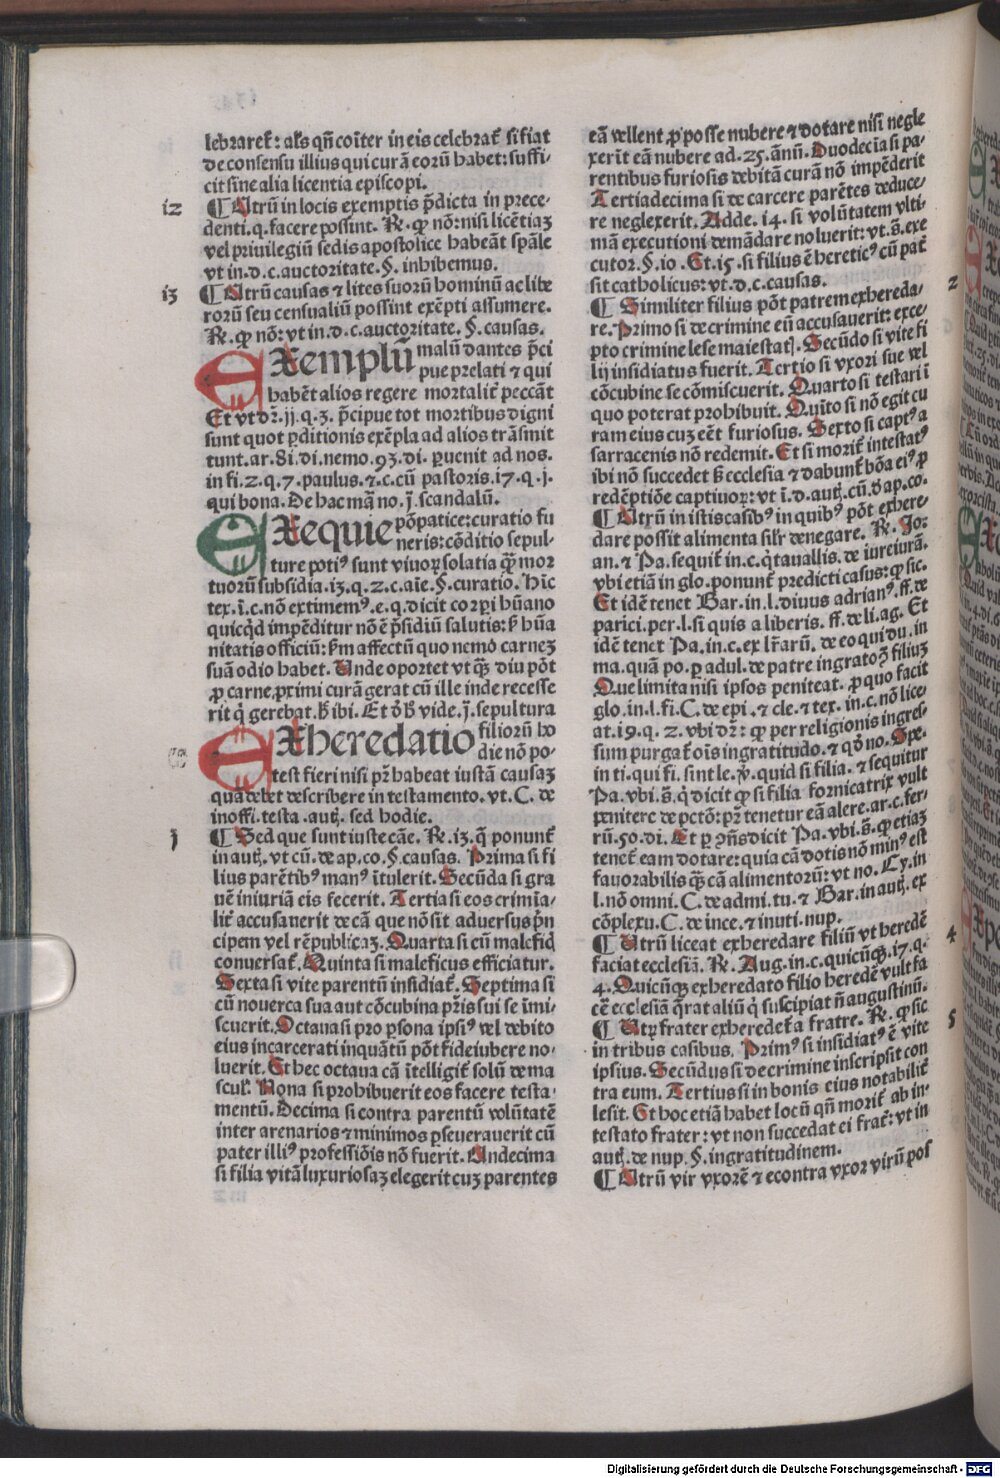 lebraret̄: al's qn̄ coīter in eis celebrat̄ si fiat
de consensu illius qui curā eorū habet: suffi-
cit sine alia licentia episcopi.
12 ¶ Utrū in locis exemptis p̄dicta in prece-
denti. q. facere possint. R̄. ꝙ nō: nisi licētiaꝫ
vel priuilegiū sedis apostolice habeāt sp̄ale
vt in. d. c. auctoritate. §. inhibemus.
13 ¶ Utrū causas ⁊ lites suorū hominū ac libe
rorū seu censualiū possint exēpti assumere.
R̄. ꝙ nō: vt in. d. c. auctoritate. §. causas.
EXemplū malū dantes p̄ci
pue prelati ⁊ qui
habēt alios regere mortalit̄ peccāt
Et vt dr̄. jj. q. 3. p̄cipue tot mortibus digni
sunt quot ꝑditionis exēpla ad alios trāsmit
tunt. ar. 81. di. nemo. 93. di. ꝑuenit ad nos.
in fi. 2. q. 7. paulus. ⁊. c. cū pastoris. 17. q. j.
qui bona. De hac mā no. j. scandalū.
EXequie pōpatice: curatio fu
neris: cōditio sepul-
ture poti⁹ sunt viuoꝝ solatia q̄ꝫ mor
tuorū subsidia. 13. q. 2. c. aīe. §. curatio. hīc
tex. ī. c. nō extimem⁹. e. q. dicit corpi hūano
quicq̄d impēditur nō ē p̄sidiū salutis: ꝟ hūa
nitatis officiū: ꝟm affectū quo nemo carneꝫ
suā odio habet. Unde oportet vt q̄ꝫ diu pōt
ꝓ carne, ꝓximi curā gerat cū ille inde recesse
rit q̇ gerebat. h̄ ibi. Et d̄ h̄ vide. j. sepultura
EXheredatio filiorū ho
die nō po-
test fieri nisi pr̄ habeat iustā causaꝫ
quā debet describere in testamento. vt. C. de
inoffi. testa. autꝫ. sed hodie.
j ¶ Sed que sunt iuste cāe. R̄. 13. q̄ ponunt̄
in autꝫ. vt cū. de ap. co. §. causas. Prima si fi
lius parētib⁹ man⁹ ītulerit. Secūda si gra
uē iniuriā eis fecerit. Tertia si eos crimīa-
lit̄ accusauerit de cā que nō sit aduersus p̄n
cipem vel rēpublicaꝫ. Quarta si cū malefiċ
conuersat̄. Quinta si maleficus efficiatur.
Sexta si vite parentū insidiat̄. Septima si
cū nouerca sua aut cōcubina pr̄is sui se īmi-
scuerit. Octaua si pro ꝑsona ipsi⁹ vel debito
eius incarcerati inquātū pōt fideiubere no-
luerit. Et hec octaua cā ītelligit̄ solū de ma
scul'. Nona si prohibuerit eos facere testa-
mentū. Decima si contra parentū volūtatē
inter arenarios ⁊ minimos ꝑseuerauerit cū
pater illi⁹ professiōis nō fuerit. Undecima
si filia vitā luxuriosaꝫ elegerit cuꝫ parentes
eā vellent ꝓ posse nubere ⁊ dotare nisi negle
xerīt eā nubere ad. 25. ānū. Duodecīa si pa-
rentibus furiosis debitā curā nō impēderit
Tertiadecima si de carcere parētes deduce-
re neglexerit. Adde. 14. si volūtatem vlti-
mā executioni demādare noluerit: vt. s̄. exe
cutor. §. 10. Et. 15. si filius ē heretic⁹ cū pat̄
sit catholicus: vt. d. c. causas.
2 ¶ Similiter filius pōt patrem exhereda-
re. Primo si de crimine eū accusauerit: exce-
pto crimine lese maiestat]. Secūdo si vite fi
lij insidiatus fuerit. Tertio si vxori sue vel
cōcubine se cōmiscuerit. Quarto si testari ī
quo poterat prohibuit. Quīto si nō egit cu
ram eius cuꝫ eēt furiosus. Sexto si capt⁹ a
sarracenis nō redemit. Et si morit̄ intestat⁹
ibi nō succedet ꝟ ecclesia ⁊ dabunt̄ bōa ei⁹ ꝓ
redēptiōe captiuoꝝ: vt ī. d. autꝫ. cū. d̄ ap. co.
¶ Utrū in istis casib⁹ in quib⁹ pōt exhere-
dare possit alimenta silr̄ denegare. R̄. Jo:
an. ⁊ Pa. sequit̄ in. c. q̇tauallis. de iureiurā.
vbi etiā in glo. ponunt̄ predicti casus: ꝙ sic.
Et idē tenet Bar. in. l. diuus adrian⁹. ff. de
parici. per. l. si quis a liberis. ff. de li. ag. Et
idē tenet Pa. in. c. ex lr̄arū. de eo qui du. in
ma. quā po. ꝑ adul. de patre ingrato ꝫ filiuꝫ
Que limita nisi ipsos peniteat. ꝓ quo facit
glo. in. l. fi. C. de epi. ⁊ cle. ⁊ tex. in. c. nō lice-
at. 19. q. 2. vbi dr̄: ꝙ per religionis ingres-
sum purgat̄ oīs ingratitudo. ⁊ qd̄ no. Spe.
in ti. qui fi. sint le. ꝟ. quid si filia. ⁊ sequitur
Pa. vbi. s̄. q̇ dicit ꝙ si filia fornicatrix vult
penitere ꝑ pctō: pr̄ tenetur eā alere. ar. c. fer-
rū. 50. di. Et ꝑ ꝯn̄s dicit Pa. vbi. s̄. ꝙ etiaꝫ
tenet̄ eam dotare: quia cā dotis nō min⁹ est
fauorabilis q̄ꝫ cā alimentorū: vt no. Cy. in
l. nō omni. C. de admi. tu. ⁊ Bar. in autꝫ. ex
cōplexu. C. de ince. ⁊ inuti. nup.
4 ¶ Utrū liceat exheredare filiū vt heredē
faciat ecclesiā. R̄. Aug. in. c. quicūqꝫ. 17. q.
4. Quicūqꝫ exheredato filio heredē vult fa
cē ecclesiā q̄rat aliū q̇ suscipiat n̄ augustinū.
5 ¶ Utꝝ frater exheredet̄ a fratre. R̄. ꝙ sic
in tribus casibus. Prim⁹ si insidiat⁹ ē vite
ipsius. Secūdus si de crimine inscripsit con
tra eum. Tertius si in bonis eius notabilit̄
lesit. Et hoc etiā habet locū qn̄ morit̄ ab in-
testato frater: vt non succedat ei frat̄: vt in
autꝫ. de nup. §. ingratitudinem.
¶ Utrū vir vxorē ⁊ econtra vxor virū pos
Digitalisierung gefördert durch die Deutsche Forschungsgemeinschaft - DFG